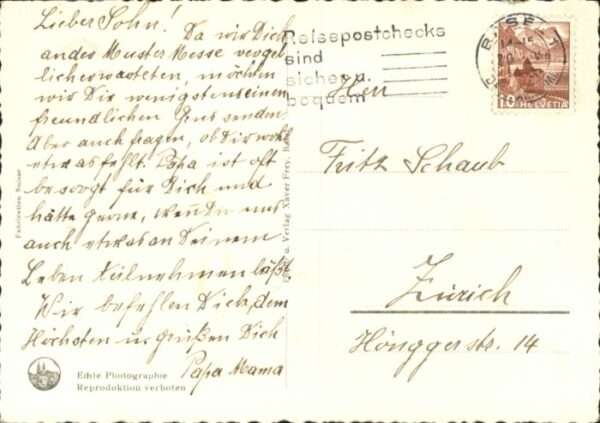 Lieber Sohn! Da wir Dich
an der Muster Messe vergeb-
lich erwarteten, möchten
wir Dir wenigstens einen
freundlichen Grus senden.
Aber auch fragen, ob Dir wohl
etwas fehlt. Papa ist oft
besorgt für Dich und
hätte gerne, wenn Du uns
auch etwas an Deinem
Leben Teilnehmen läßt.
Wir befehlen Dich, dem
Höchsten u. grüßen Dich
Papa Mama
Echte Photographie
Reproduktion verboten
u. Verlag Xaver Frey,
Reisepostchecks
sind
sicher u.
bequem
BASEL 1
10 HELVETIA
Herr
Fritz Schaub
Zürich
Hönggerstr. 14